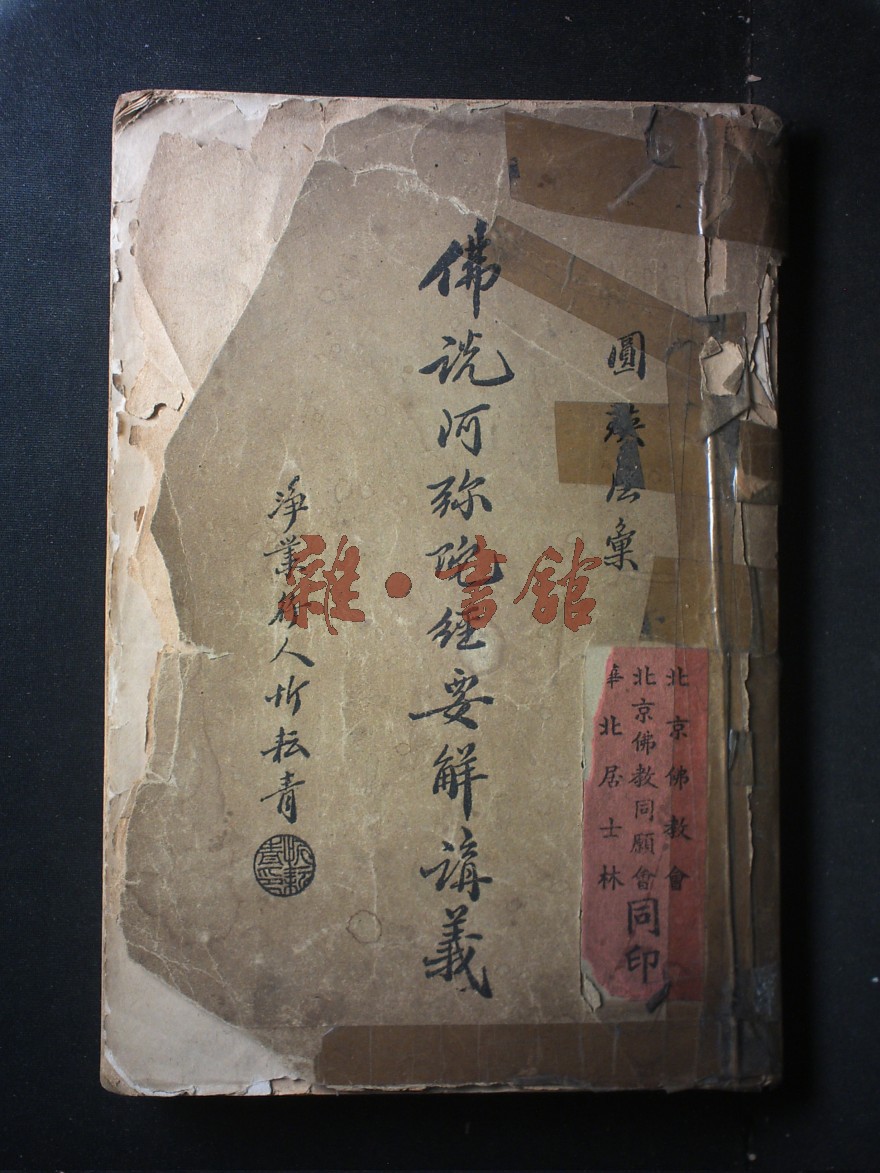 圓瑛法彙
北京佛教會
北京佛教同願會
華北居士林
同印
佛說阿弥陀經要解講義
淨業行人忻耘青
忻耘青印
雜·書館